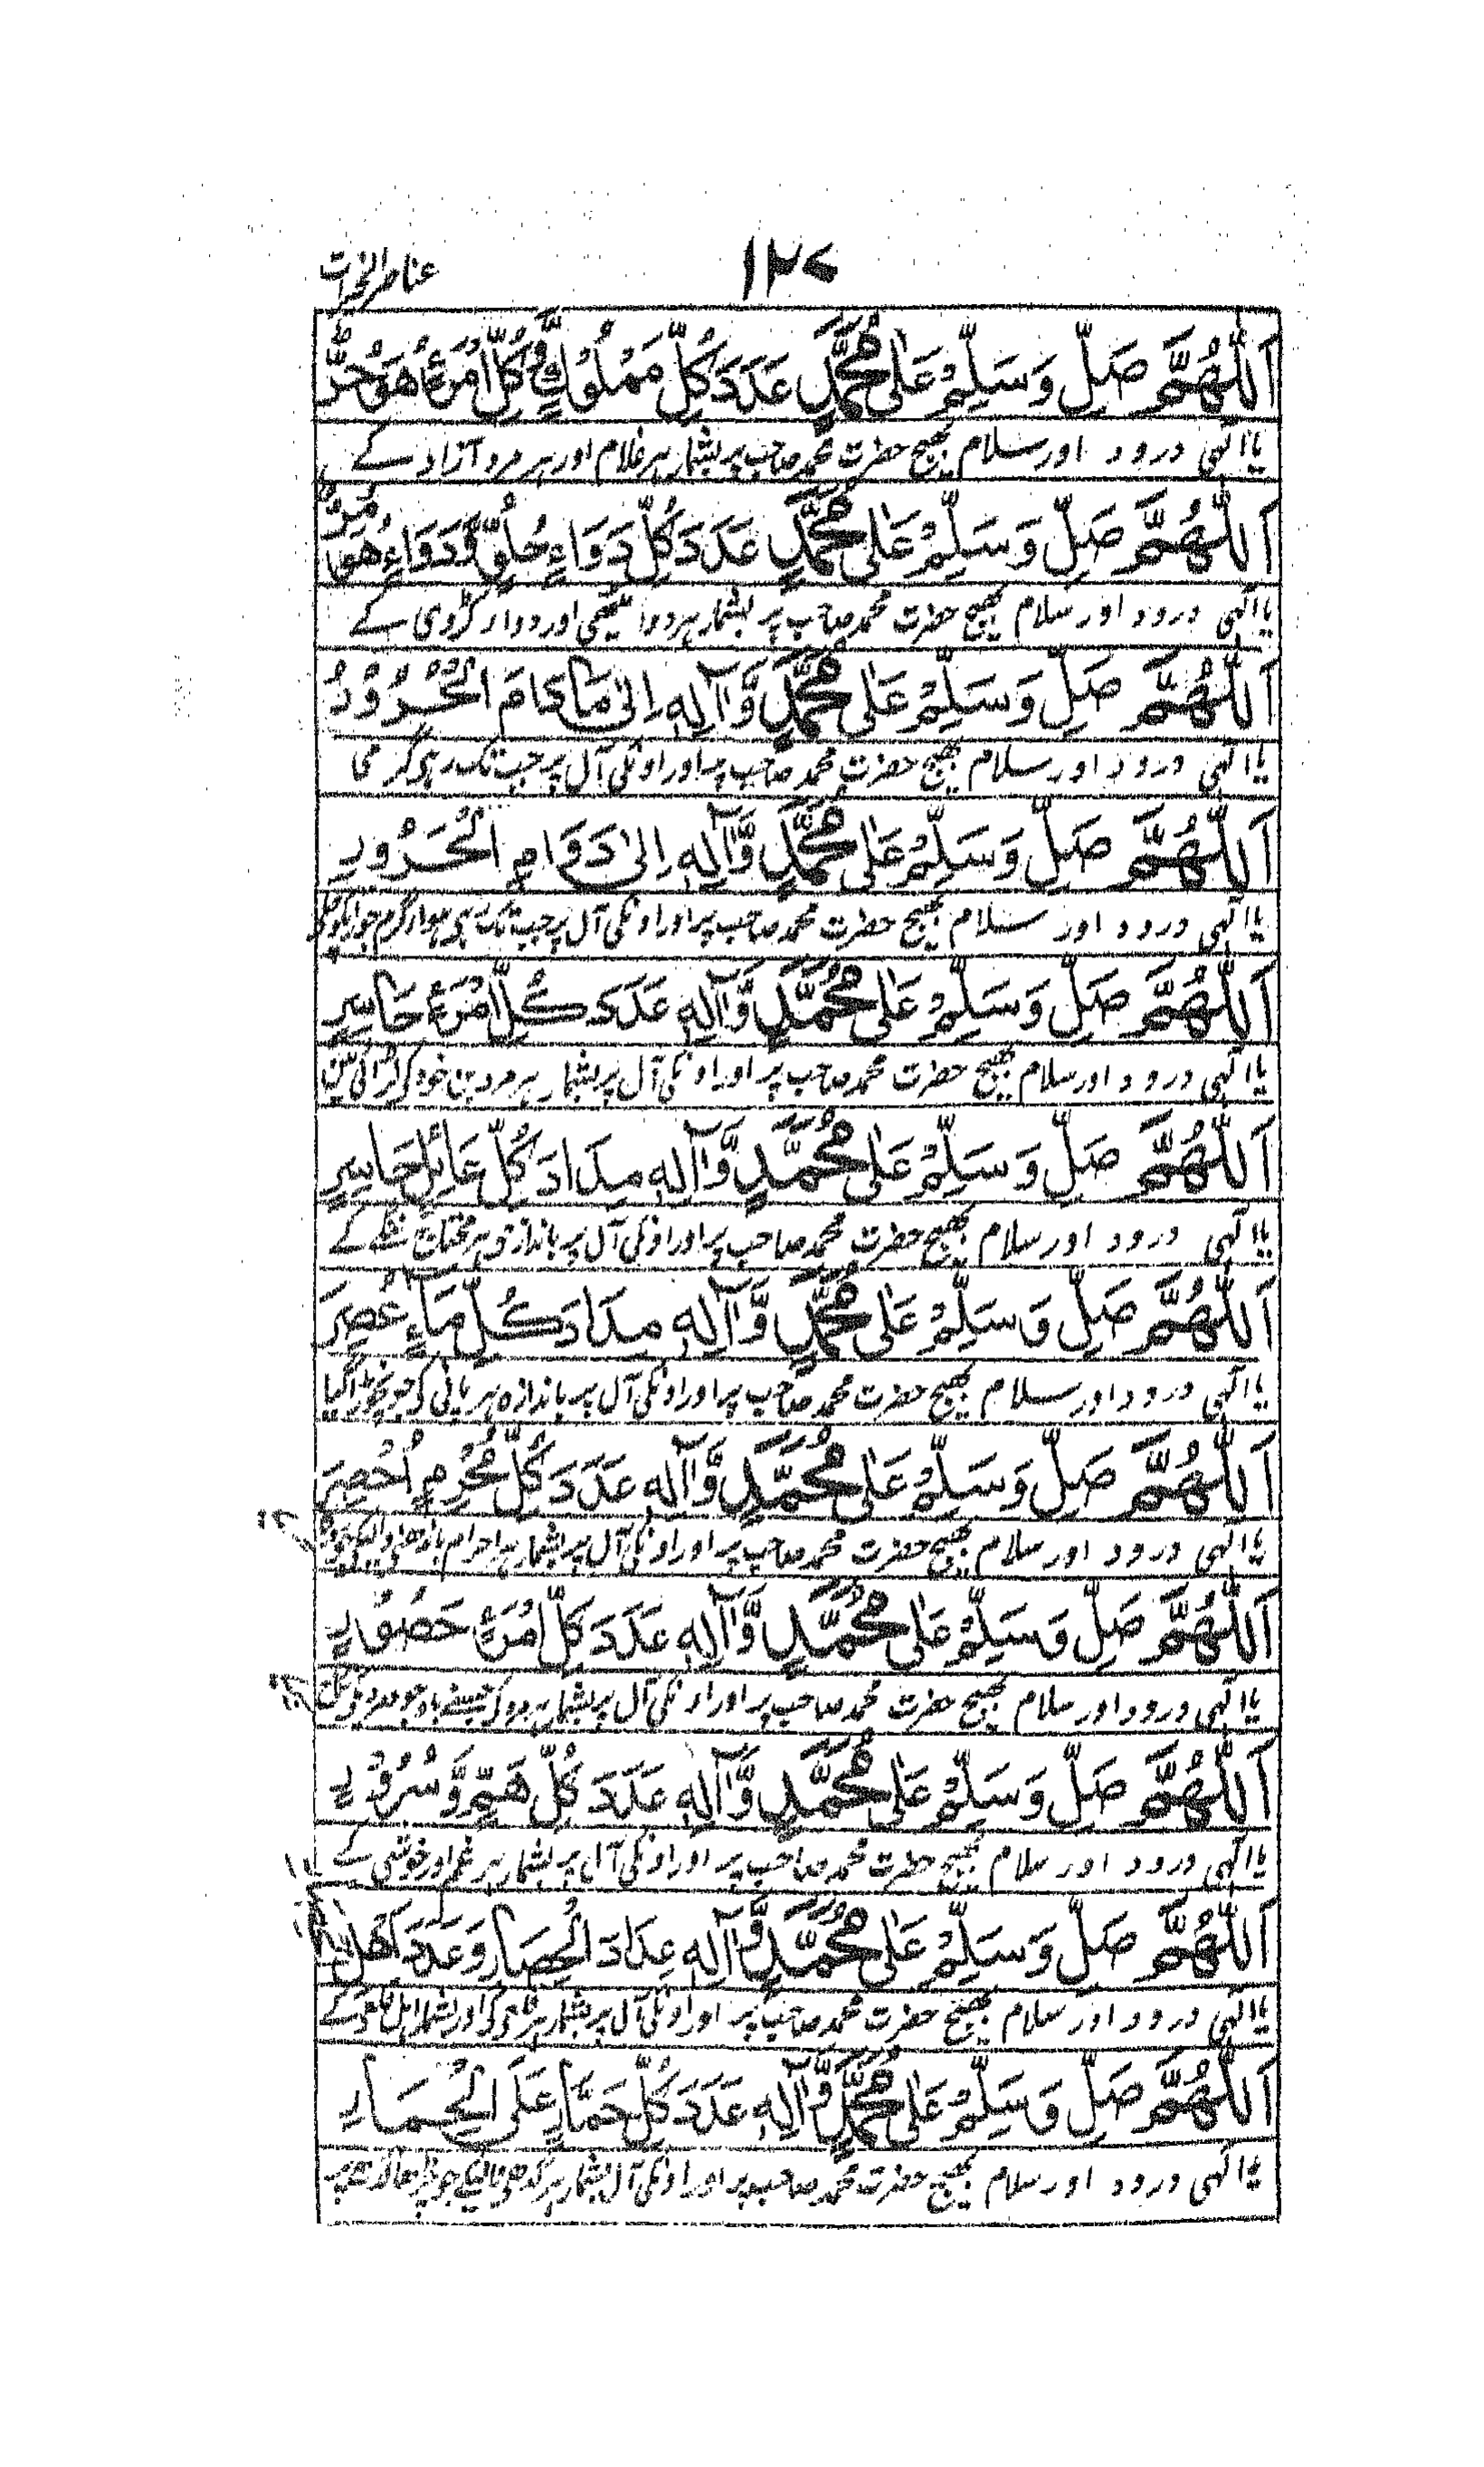 عناصر الخیرات
۱۲۷
اَللّٰهُمَّ صَلِّ وَسَلِّمْ عَلٰى مُحَمَّدٍ عَدَدَ كُلِّ مَمْلُوْكٍ وَّكُلِّ امْرَءٍ هُوَ حُرٌّ
یا الٰہی درود اور سلام بھیج حضرت محمد صاحب پر بشمار ہر غلام اور ہر مرد آزاد کے
اَللّٰهُمَّ صَلِّ وَسَلِّمْ عَلٰى مُحَمَّدٍ عَدَدَ كُلِّ دَوَاءٍ حُلْوٍ وَّدَوَاءٍ هُوَ مُرٌّ
یا الٰہی درود اور سلام بھیج حضرت محمد صاحب پر بشمار ہر دوا میٹھی اور دوار کڑوی کے
اَللّٰهُمَّ صَلِّ وَسَلِّمْ عَلٰى مُحَمَّدٍ وَّآلِهٖ اِلٰى مَا دَامَ الْحُرُوْرُ
یا الٰہی درود اور سلام بھیج حضرت محمد صاحب پر اور اونکی آل پر جب تک رہی گرمی
اَللّٰهُمَّ صَلِّ وَسَلِّمْ عَلٰى مُحَمَّدٍ وَّآلِهٖ اِلٰى دَوَامِ الْحَرُوْرِ
یا الٰہی درود اور سلام بھیج حضرت محمد صاحب پر اور اونکی آل پر جب تک رہی ہوار گرم جو
اَللّٰهُمَّ صَلِّ وَسَلِّمْ عَلٰى مُحَمَّدٍ وَّآلِهٖ عَدَدَ كُلِّ امْرَءٍ حَاسِرٍ
یا الٰہی درود اور سلام بھیج حضرت محمد صاحب پر اور اونکی آل پر بشمار ہر مرد بن خود کے لڑائی میں
اَللّٰهُمَّ صَلِّ وَسَلِّمْ عَلٰى مُحَمَّدٍ وَّآلِهٖ مِدَادَ كُلِّ عَائِلٍ حَاسِرٍ
یا الٰہی درود اور سلام بھیج حضرت محمد صاحب پر اور اونکی آل پر باندازہ ہر محتاج ننگے کے
اَللّٰهُمَّ صَلِّ وَسَلِّمْ عَلٰى مُحَمَّدٍ وَّآلِهٖ مِدَادَ كُلِّ مَاءٍ عُصِرَ
یا الٰہی درود اور سلام بھیج حضرت محمد صاحب پر اور اونکی آل پر باندازہ ہر پانی کے جو نچوڑا گیا
اَللّٰهُمَّ صَلِّ وَسَلِّمْ عَلٰى مُحَمَّدٍ وَّآلِهٖ عَدَدَ كُلِّ مُحْرِمٍ اُحْصِرَ
یا الٰہی درود اور سلام بھیج حضرت محمد صاحب پر اور اونکی آل پر بشمار ہر احرام
اَللّٰهُمَّ صَلِّ وَسَلِّمْ عَلٰى مُحَمَّدٍ وَّآلِهٖ عَدَدَ كُلِّ امْرَءٍ حَصُوْرٍ
یا الٰہی درود اور سلام بھیج حضرت محمد صاحب پر اور اونکی آل پر بشمار ہر مرد کے جسنے باوجود
اَللّٰهُمَّ صَلِّ وَسَلِّمْ عَلٰى مُحَمَّدٍ وَّآلِهٖ عَدَدَ كُلِّ هَمٍّ وَّسُرُوْرٍ
یا الٰہی درود اور سلام بھیج حضرت محمد صاحب پر اور اونکی آل پر بشمار ہر غم اور خوشی کے
اَللّٰهُمَّ صَلِّ وَسَلِّمْ عَلٰى مُحَمَّدٍ وَّآلِهٖ عِدَادَ الْحِصَارِ وَعَدَدَ اَهْلِ
یا الٰہی درود اور سلام بھیج حضرت محمد صاحب پر اور اونکی آل پر بشمار ہر قلعہ کی اور بشمار اہل قلعہ کے
اَللّٰهُمَّ صَلِّ وَسَلِّمْ عَلٰى مُحَمَّدٍ وَّآلِهٖ عَدَدَ كُلِّ حَمَّارٍ عَلَى الْحِمَارِ
یا الٰہی درود اور سلام بھیج حضرت محمد صاحب پر اور اونکی آل بشمار ہر گدھی والیکے جو